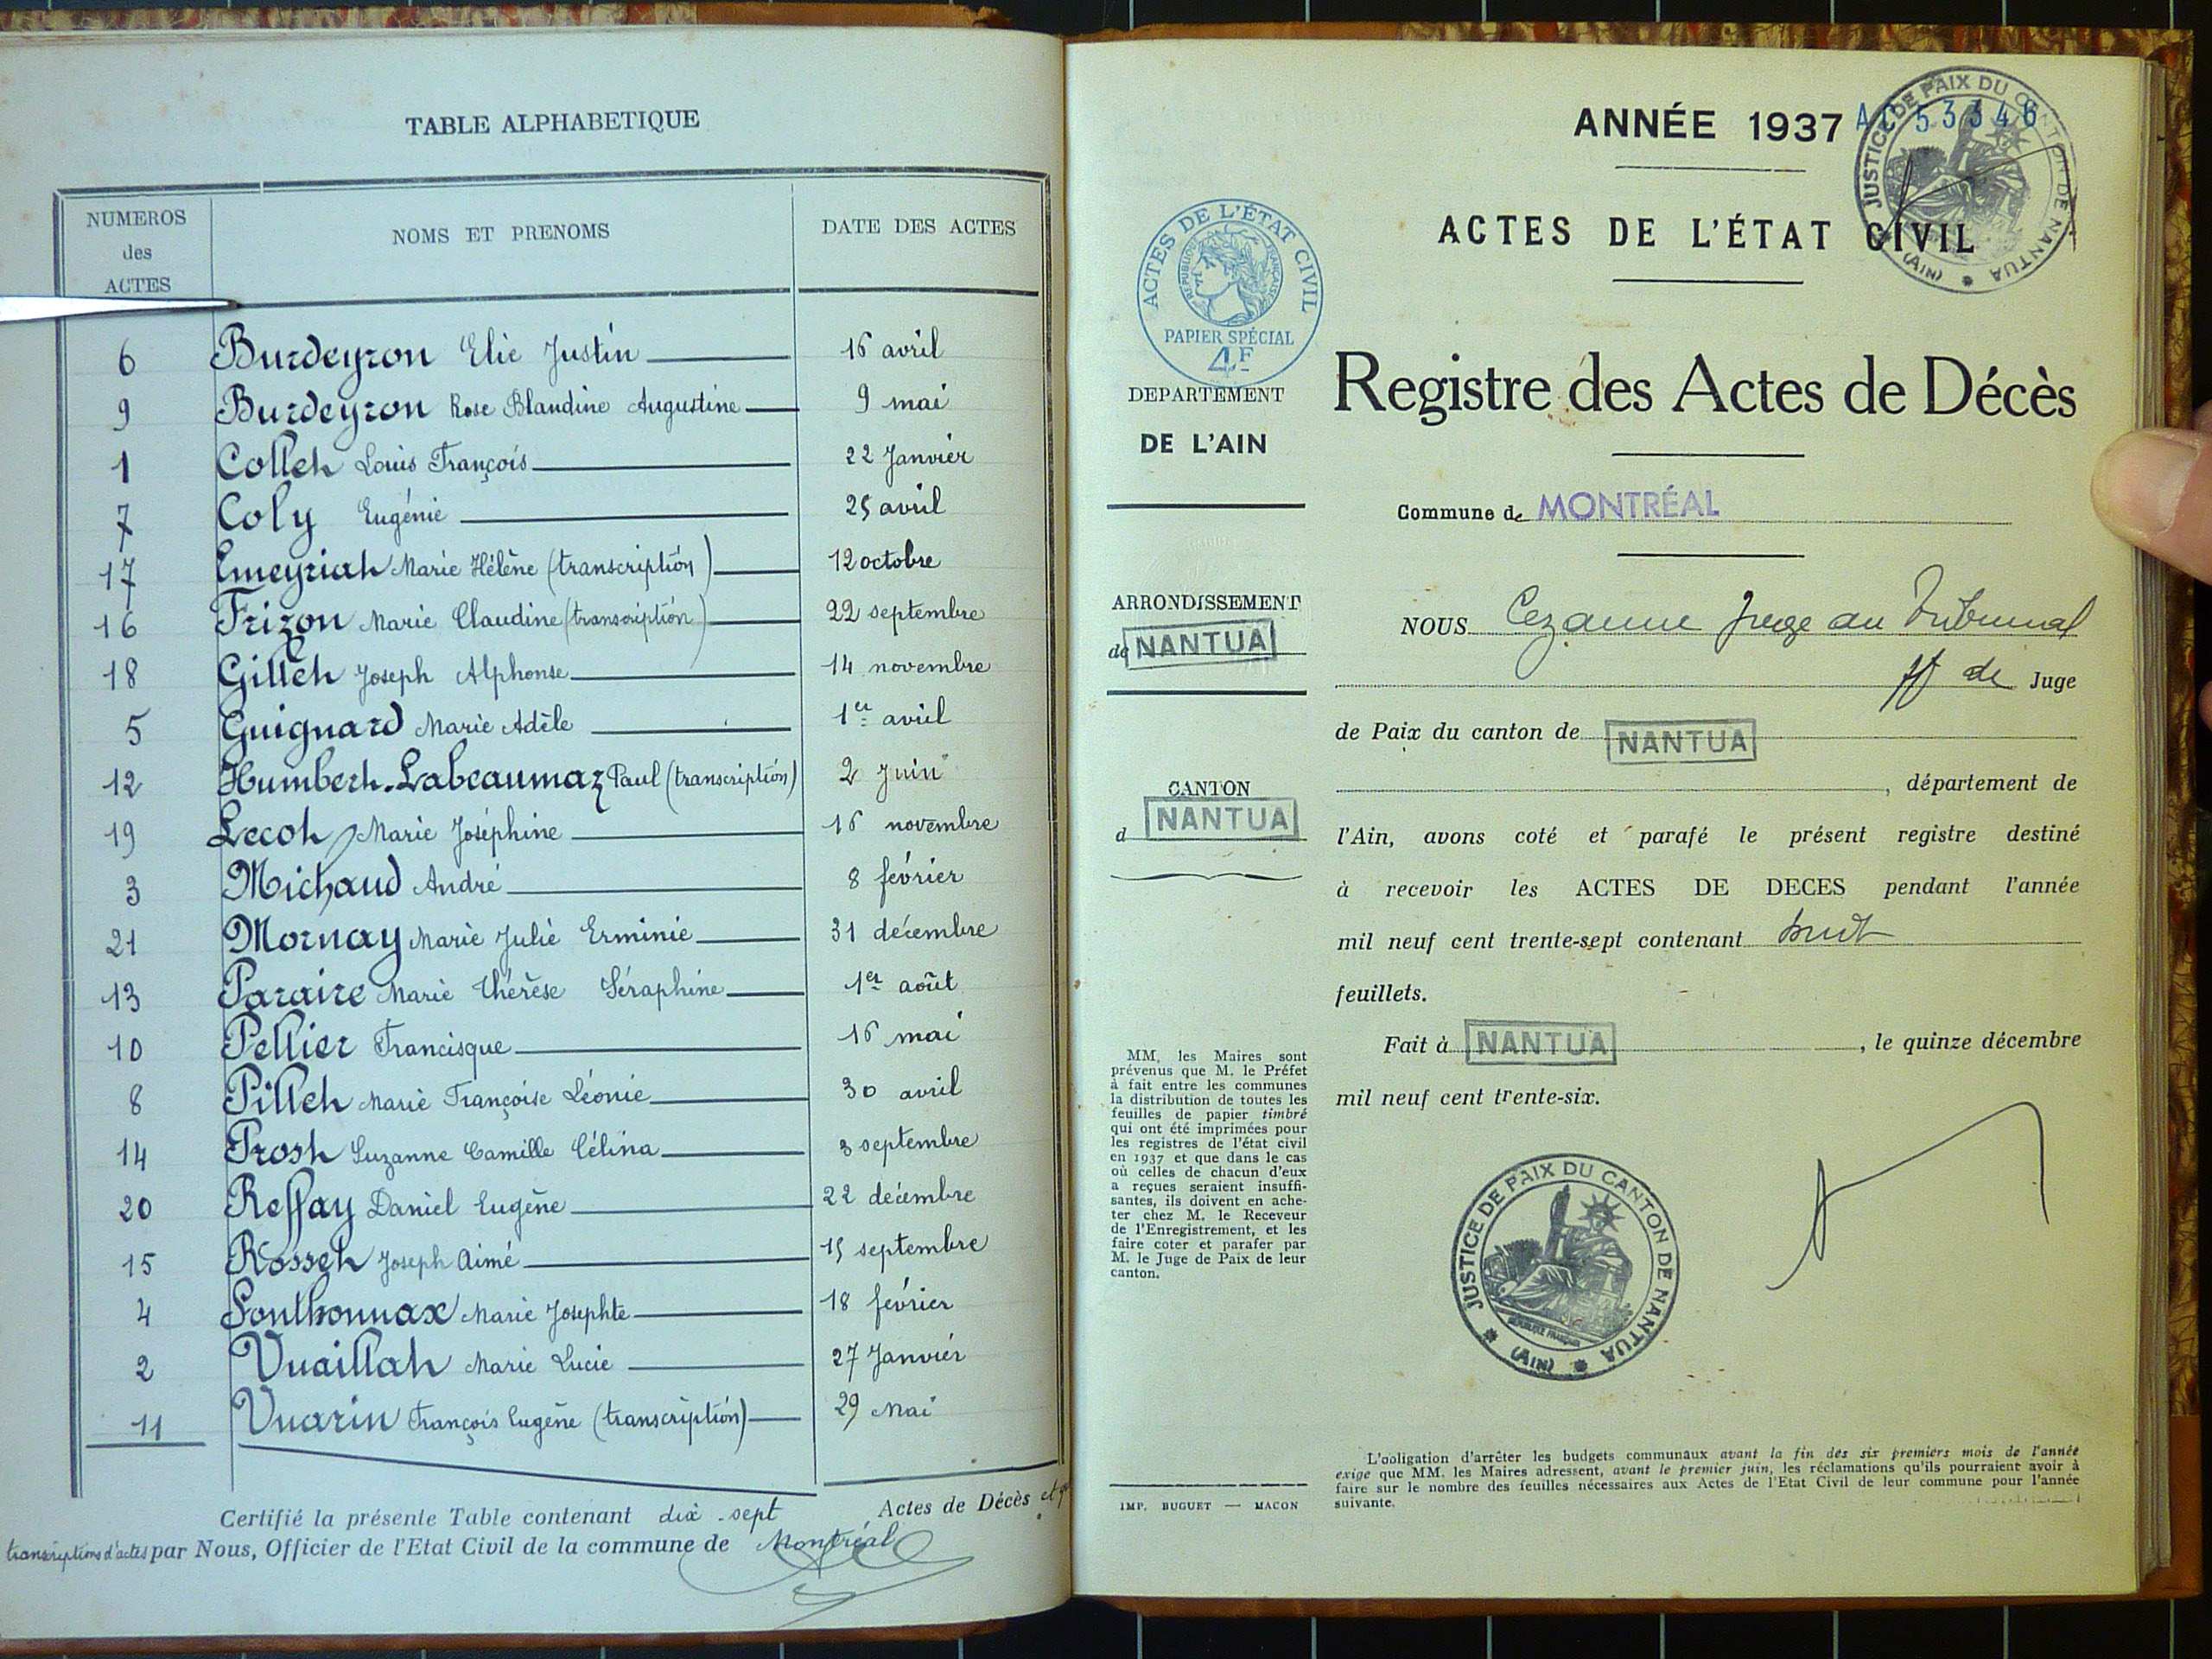 TABLE ALPHABETIQUE
NUMEROS des ACTES
NOMS ET PRENOMS
DATE DES ACTES
6 Burdeyron Elie Justin 16 avril
9 Burdeyron Rose Blandine Augustine 9 mai
1 Collet Louis François 22 Janvier
7 Coly Eugénie 25 avril
17 Emeyriat Marie Hélène (transcription) 12 octobre
16 Frizon Marie Claudine (transcription) 22 septembre
18 Gillet Joseph Alphonse 14 novembre
5 Guignard Marie Adèle 1er avril
12 Humbert-Labeaumaz Paul (transcription) 2 Juin
19 Lecot, Marie Joséphine 16 novembre
3 Michaud André 8 février
21 Mornay Marie Julie Erminie 31 décembre
13 Paraire Marie Thérèse Séraphine 1er août
10 Pellier Francisque 16 mai
8 Pillet Marie Françoise Léonie 30 avril
14 Prost Suzanne Camille Célina 3 septembre
20 Reffay Daniel Eugène 22 décembre
15 Rosset Joseph Aimé 15 septembre
4 Sonthonnax Marie Josephte 18 février
2 Vuaillat Marie Lucie 27 Janvier
11 Vuarin François Eugène (transcription) 29 Mai
Certifié la présente Table contenant dix-sept Actes de Décès et
transcriptions d'actes par Nous, Officier de l'Etat Civil de la commune de Montréal
ANNÉE 1937
53346
JUSTICE DE PAIX DU CANTON DE NANTUA
(AIN)
ACTES DE L'ÉTAT CIVIL
ACTES DE L'ÉTAT CIVIL
RÉPUBLIQUE FRANÇAISE
PAPIER SPÉCIAL
4F
DEPARTEMENT
DE L'AIN
Registre des Actes de Décès
Commune de MONTRÉAL
ARRONDISSEMENT
de NANTUA
CANTON
d NANTUA
NOUS Cezanne Juge au Tribunal
ff de Juge
de Paix du canton de NANTUA
, département de
l'Ain, avons coté et parafé le présent registre destiné
à recevoir les ACTES DE DECES pendant l'année
mil neuf cent trente-sept contenant huit
feuillets.
Fait à NANTUA, le quinze décembre
mil neuf cent trente-six.
MM, les Maires sont
prévenus que M. le Préfet
à fait entre les communes
la distribution de toutes les
feuilles de papier timbré
qui ont été imprimées pour
les registres de l'état civil
en 1937 et que dans le cas
où celles de chacun d'eux
a reçues seraient insuffi-
santes, ils doivent en ache-
ter chez M. le Receveur
de l'Enregistrement, et les
faire coter et parafer par
M. le Juge de Paix de leur
canton.
JUSTICE DE PAIX DU CANTON DE NANTUA
RÉPUBLIQUE FRANÇAISE
(AIN)
IMP. BUGUET — MACON
L'obligation d'arrêter les budgets communaux avant la fin des six premiers mois de l'année
exige que MM. les Maires adressent, avant le premier juin, les réclamations qu'ils pourraient avoir à
faire sur le nombre des feuilles nécessaires aux Actes de l'Etat Civil de leur commune pour l'année
suivante.